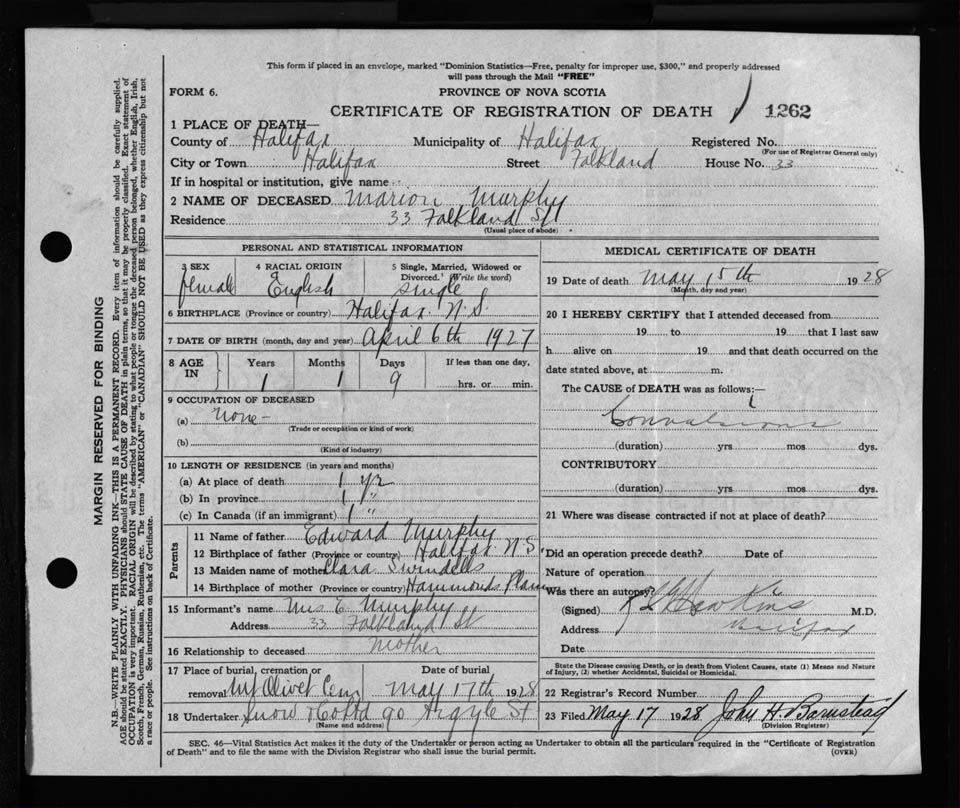 This form if placed in an envelope, marked "Dominion Statistics—Free, penalty for improper use, $300," and properly addressed
will pass through the Mail "FREE"
FORM 6. PROVINCE OF NOVA SCOTIA
CERTIFICATE OF REGISTRATION OF DEATH 1262
1 PLACE OF DEATH—
County of Halifax Municipality of Halifax Registered No.
(For use of Registrar General only)
City or Town Halifax Street Falkland House No. 33
If in hospital or institution, give name
2 NAME OF DECEASED Marion Murphy
Residence 33 Falkland St
(Usual place of abode)
PERSONAL AND STATISTICAL INFORMATION
3 SEX 4 RACIAL ORIGIN 5 Single, Married, Widowed or
Divorced. (Write the word)
female English single
6 BIRTHPLACE (Province or country) Halifax N.S.
7 DATE OF BIRTH (month, day and year) April 6th 1927
8 AGE IN Years Months Days If less than one day,
1 1 9 hrs. or min.
9 OCCUPATION OF DECEASED
(a) none -
(Trade or occupation or kind of work)
(b)
(Kind of industry)
10 LENGTH OF RESIDENCE (in years and months)
(a) At place of death 1 yr
(b) In province 1 "
(c) In Canada (if an immigrant) 1 "
Parents
11 Name of father Edward Murphy
12 Birthplace of father (Province or country) Halifax N.S.
13 Maiden name of mother Clara Swindells
14 Birthplace of mother (Province or country) Hammonds Plain
15 Informant's name Mrs E. Murphy
Address 33 Falkland St
16 Relationship to deceased mother
17 Place of burial, cremation or Date of burial
removal Mt Olivet Cem May 17th 1928
18 Undertaker Snow & Co Ltd 90 Argyle St
(Name and address)
MEDICAL CERTIFICATE OF DEATH
19 Date of death May 15th 1928
(Month, day and year)
20 I HEREBY CERTIFY that I attended deceased from
19 to 19 that I last saw
h alive on 19 and that death occurred on the
date stated above, at m.
The CAUSE of DEATH was as follows:—
Convulsions
(duration) yrs mos dys.
CONTRIBUTORY
(duration) yrs mos dys.
21 Where was disease contracted if not at place of death?
Did an operation precede death? Date of
Nature of operation
Was there an autopsy?
(Signed) Hawkins M.D.
Address Halifax
Date
State the Disease causing Death, or in death from Violent Causes, state (1) Means and Nature
of Injury, (2) whether Accidental, Suicidal or Homicidal.
22 Registrar's Record Number
23 Filed May 17 1928 John H. Barnstead
(Division Registrar)
SEC. 46—Vital Statistics Act makes it the duty of the Undertaker or person acting as Undertaker to obtain all the particulars required in the "Certificate of Registration
of Death" and to file the same with the Division Registrar who shall issue the burial permit. (OVER)
MARGIN RESERVED FOR BINDING
N.B.—WRITE PLAINLY WITH UNFADING INK—THIS IS A PERMANENT RECORD. Every item of information should be carefully supplied.
AGE should be stated EXACTLY. PHYSICIANS should STATE CAUSE OF DEATH in plain terms, so that it may be properly classified. Exact statement of
OCCUPATION is very important. RACIAL ORIGIN will be described by stating to what people or tongue the deceased person belonged, whether English, Irish,
Scotch, French, German, Russian, Ruthenian, etc. The terms "AMERICAN" or "CANADIAN" SHOULD NOT BE USED as they express citizenship but not
a race or people. See instructions on back of Certificate.